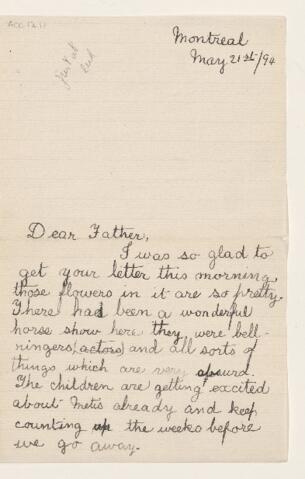 ACC 1211
Montreal
May 21st/94
Dear Father,
I was so glad to
get your letter this morning,
those flowers in it are so pretty.
There had been a wonderful
horse show here they were bell-
ringers, (actors) and all sorts of
things which are very absurd.
The children are getting excited
about Metis already and keep
counting up the weeks before
we go away.